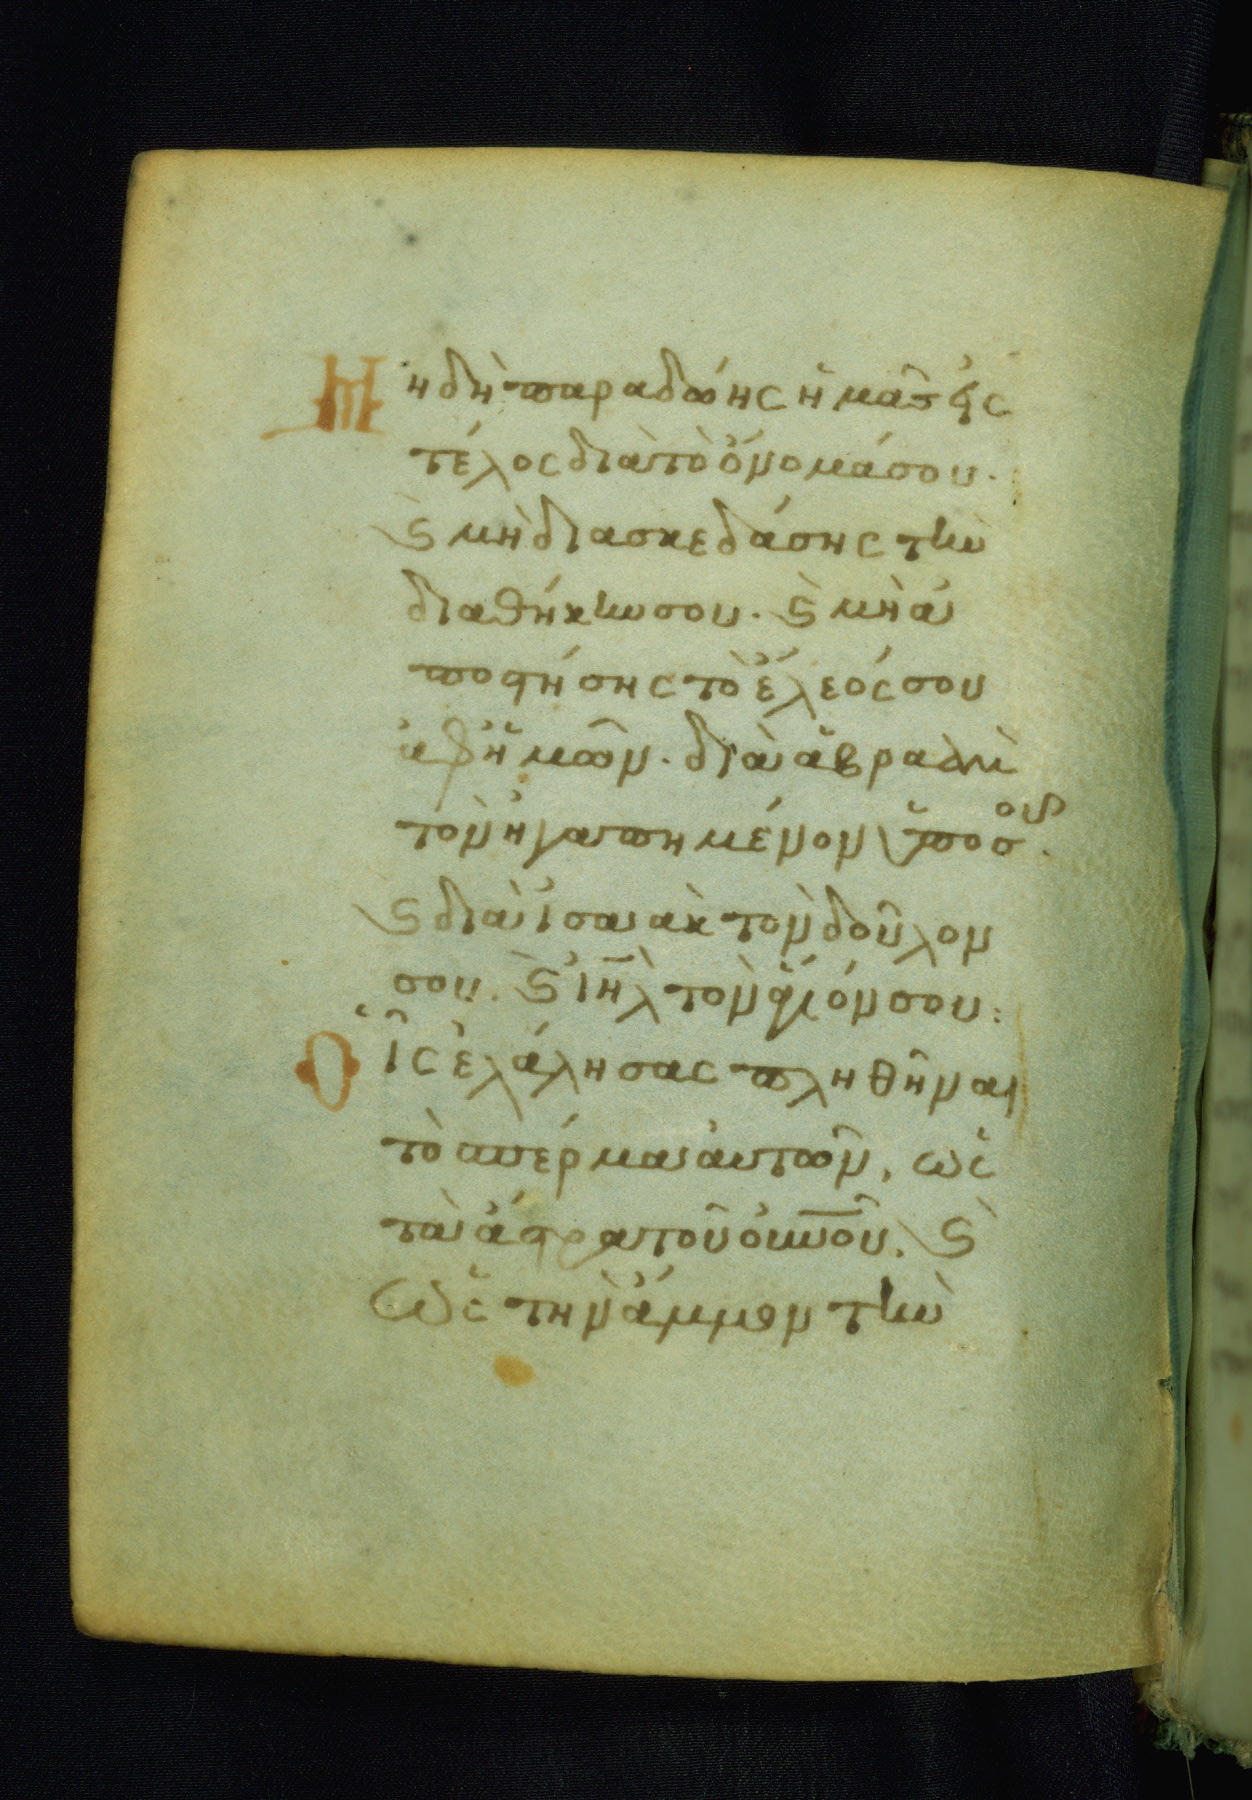 Μὴ δὴ παραδώης ἡμᾶς εἰς
τέλος διὰ τὸ ὄνομά σου.
ϛ μὴ διασκεδάσης τὴν
διαθήκην σου. ϛ μὴ ἀ
ποστήσης τὸ ἔλεός σου
ἀφ ἡμῶν. διὰ ἀβραὰμ
τὸν ἠγαπημένον ὑπο σοῦ.
ϛ διὰ ἰσαὰκ τὸν δοῦλον
σου. ϛ ιηλ τὸν ἅγιόν σου:
Οἷς ἐλάλησας πληθῦναι
τὸ σπέρμα αὐτῶν, ὡς
τὰ ἄστρα τοῦ οὐνοῦ, ϛ
ὡς τὴν ἄμμον τὴν